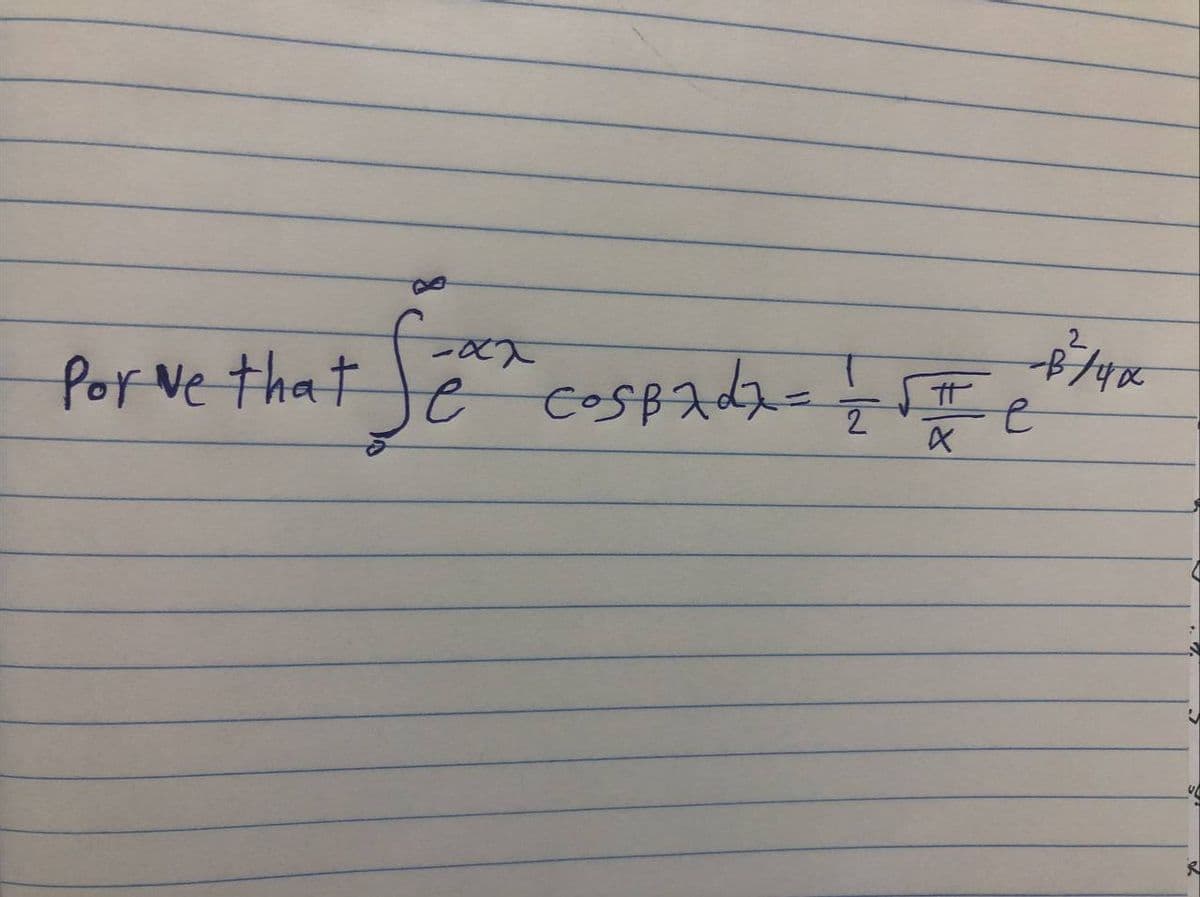 Porve that ∫₀^∞ e^{-αλ} cosβλdλ = 1/2 √(π/α) e^{-β²/4α}